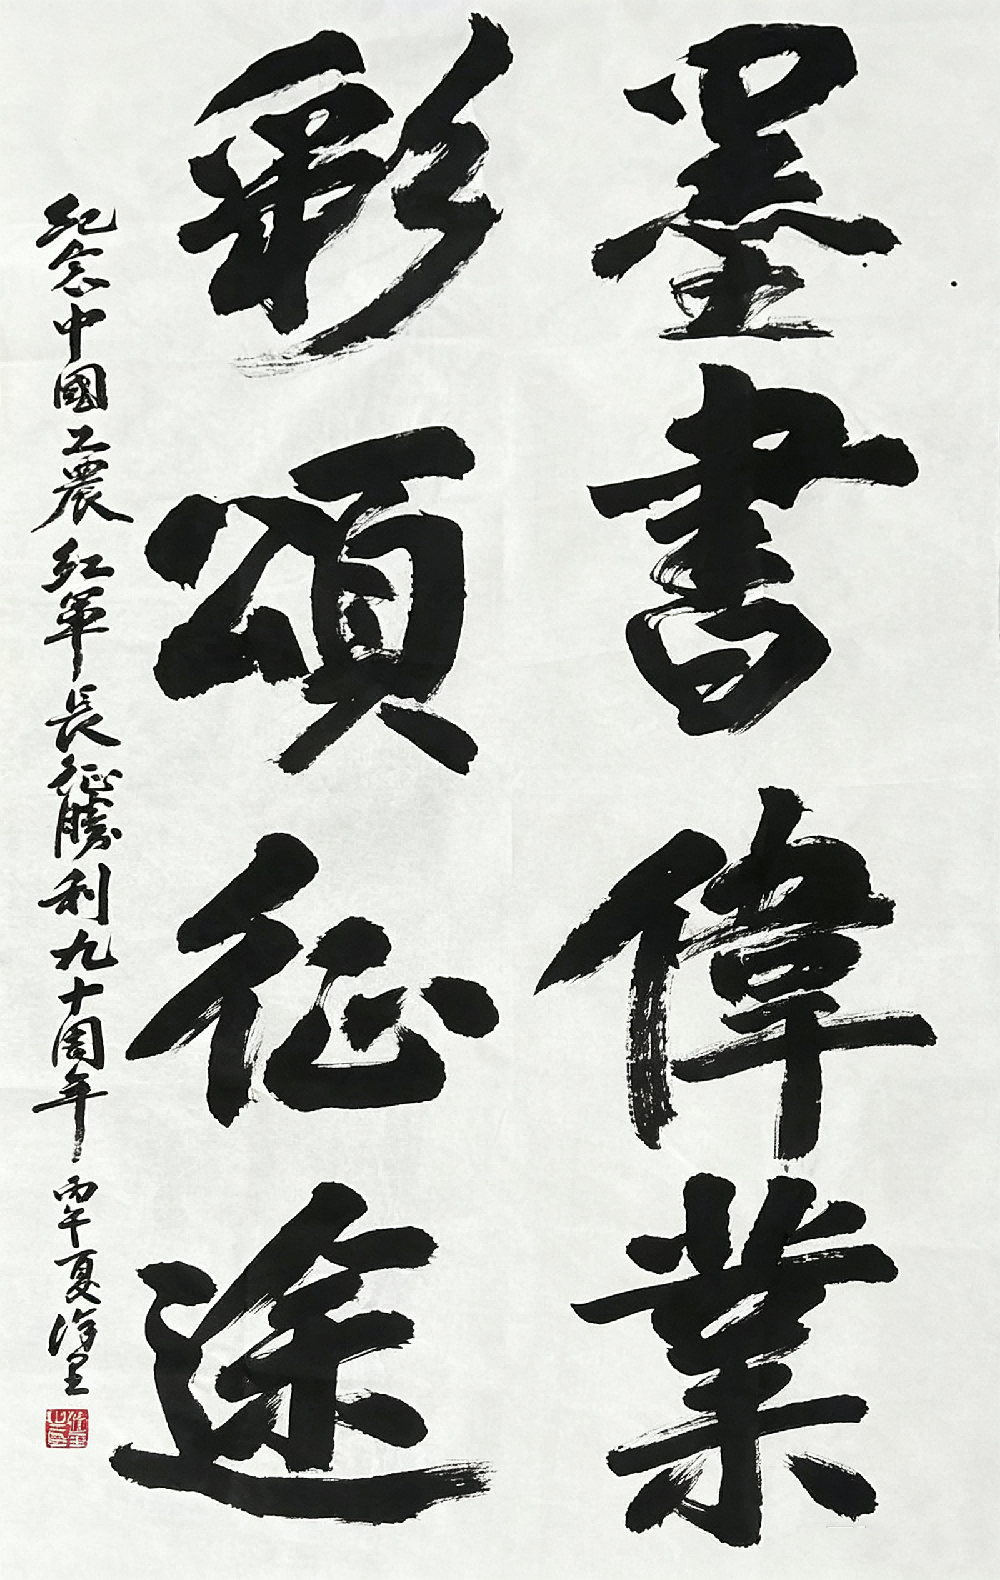 墨書偉業
彩頌征途
紀念中國工農紅軍長征勝利九十周年 丙午夏